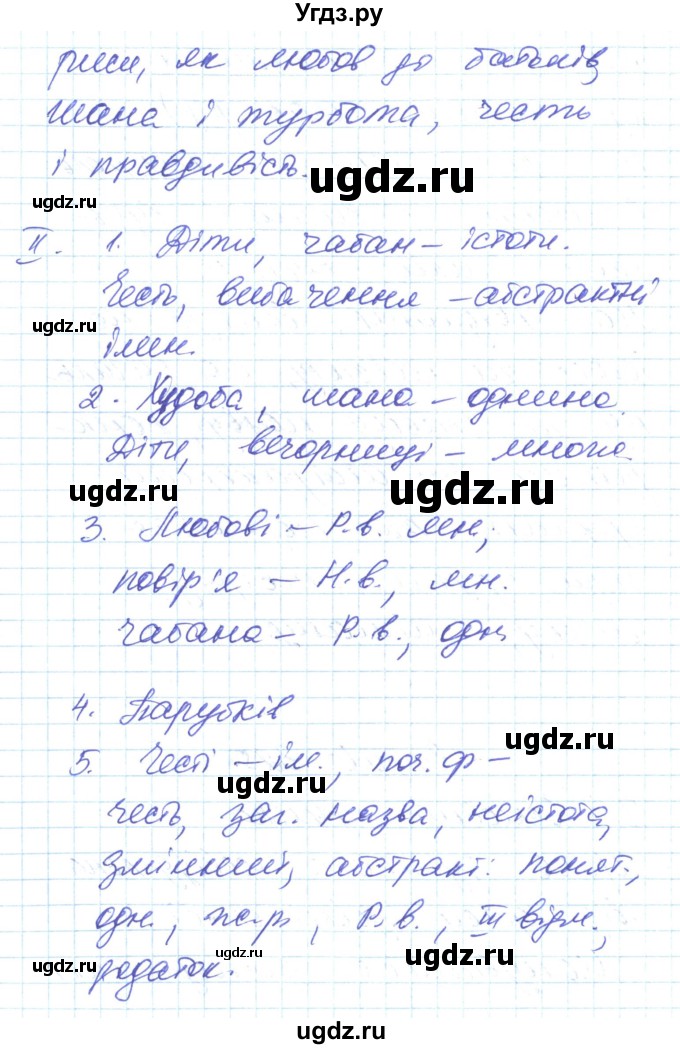 Угдз.ру
риси, як любов до батьків,
шана і турбота, честь
і правдивість.
ugdz.ru
ugdz.ru
II. 1. Діти, чабан – істоти.
Честь, вибачення – абстрактні
ugdz.ru
імен.
2. Худоба, шана – однина.
Діти, вечорниці – множ.
ugdz.ru
ugdz.ru
3. Любові – Р.в. мн.;
повір'я – Н.в., мн.
чабана – Р.в., одн.
4. Парубків
ugdz.ru
5. Честі – ім., поч. ф –
ugdz.ru
честь, заг. назва, неістота,
змінний, абстракт. понят.,
одн., ж.р., Р.в., III відм.,
ugdz.ru
ugdz.ru
ugdz.ru
родаток.
ugdz.ru